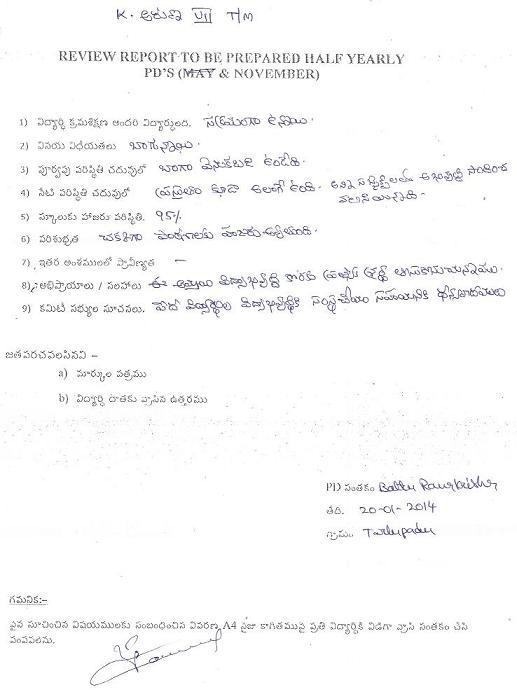 K. అరుణ VII T/M
REVIEW REPORT TO BE PREPARED HALF YEARLY
PD'S (MAY & NOVEMBER)
1) విద్యార్థి క్రమశిక్షణ అందరి విద్యార్థులది. సక్రమంగా ఉన్నాయి.
2) వినయ విధేయతలు బాగున్నాయి.
3) పూర్వపు పరిస్థితి చదువులో బాగా వెనుకబడి ఉండేది.
4) నేటి పరిస్థితి చదువులో ప్రస్తుతం కూడా అలాగే ఉంది. అన్ని సబ్జెక్ట్‌లలో
5) స్కూలుకు హాజరు పరిస్థితి. 95%
6) పరిశుభ్రత చక్కగా
7) ఇతర అంశములలో ప్రావీణ్యత —
8) అభిప్రాయాలు / సలహాలు ఈ అమ్మాయి విద్యాభివృద్ధి కొరకు ప్రత్యేక శ్రద్ధ తీసుకొనుచున్నాము.
9) కమిటీ సభ్యుల సూచనలు. పేద విద్యార్థుల విద్యాభివృద్ధికి సంస్థ చేయు సహాయానికి ధన్యవాదములు
జతపరచవలసినవి –
a) మార్కుల పత్రము
b) విద్యార్థి దాతకు వ్రాసిన ఉత్తరము
PD సంతకం
తేది. 20-01-2014
గ్రామం Tarlupadu
గమనిక:-
పైన సూచించిన విషయములకు సంబంధించిన వివరణ A4 సైజు కాగితముపై ప్రతి విద్యార్థికి విడిగా వ్రాసి సంతకం చేసి
పంపవలెను.